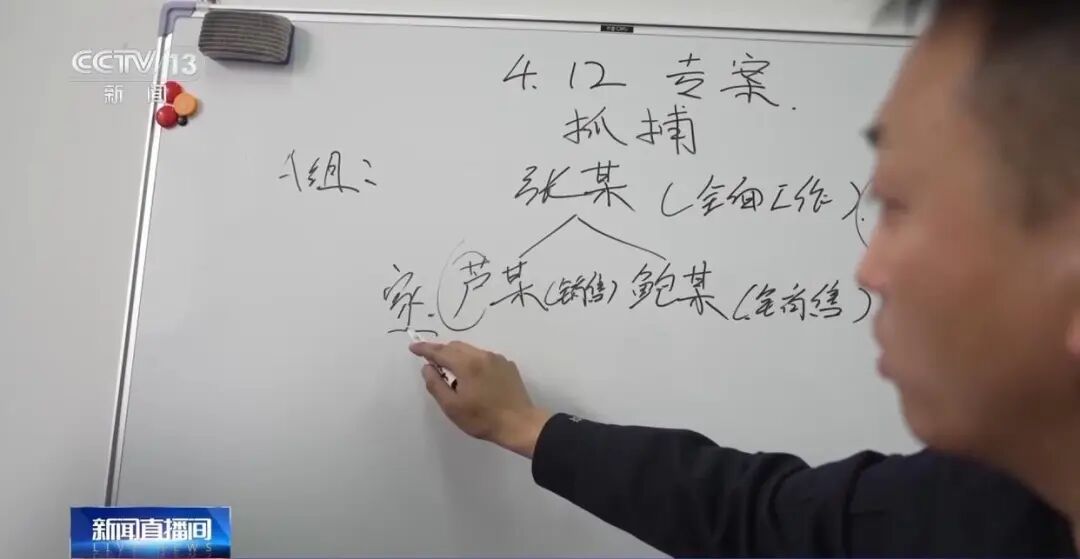 CCTV 13
新闻
4.12 专案.
抓捕
A组:
张某(全面工作)
家. 芦某(销售) 鲍某(全商售)
新闻直播间
LIVE NEWS